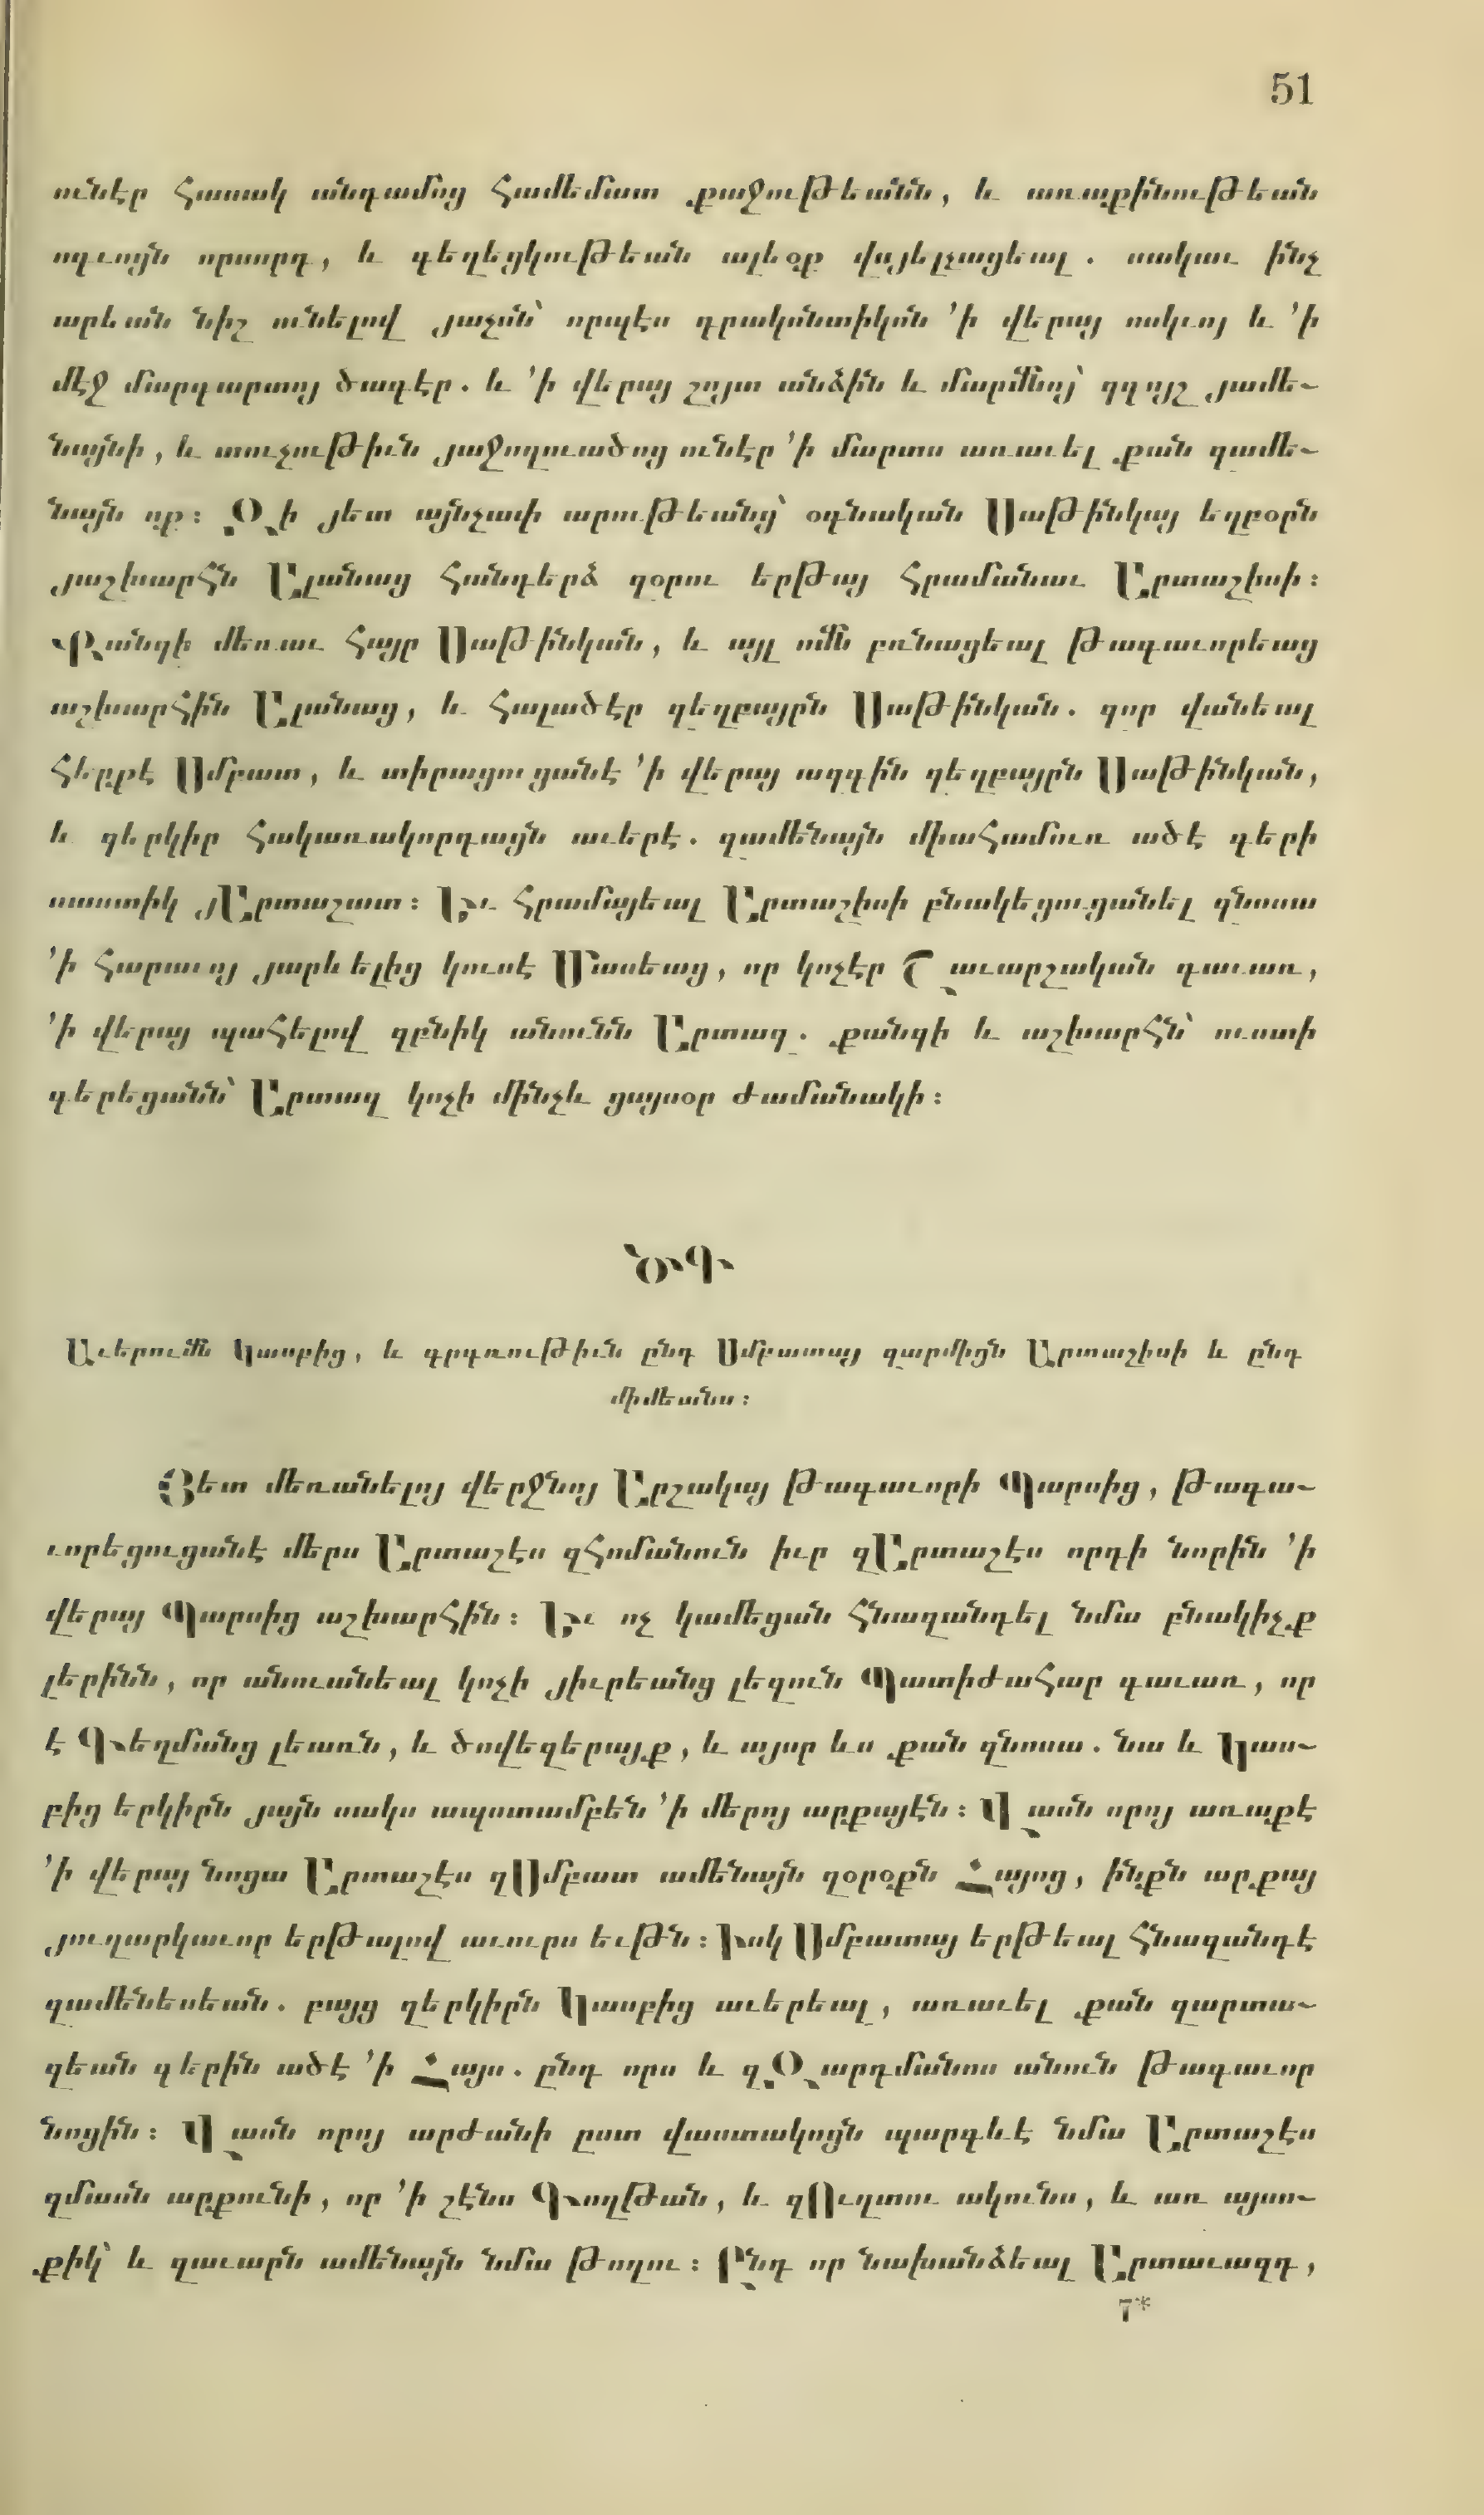 51
ունէր հասակ անդամոց համեմատ քաջութեանն, և առաքինութեան
ոգւոյն որսորդ, և գեղեցկութեան ալեօք վայելչացեալ. սակաւ ինչ
արեան նիշ ունելով յաչսն՝ որպէս դրակոնտիկոն ՚ի վերայ ոսկւոյ և ՚ի
մէջ մարգարտոյ ծագէր. և ՚ի վերայ շոյտ անձին և մարմնոյ՝ զգոյշ յամե֊
նայնի, և տուչութիւն յաջողուածոց ունէր ՚ի մարտս առաւել քան զամե֊
նայն ոք։ Զի յետ այնչափ արութեանց՝ օգնական Սաթինկայ եղբօրն
յաշխարհն Ալանաց հանդերձ զօրու երթայ հրամանաւ Արտաշիսի։
Քանզի մեռաւ հայր Սաթինկան, և այլ ոմն բռնացեալ թագաւորեաց
աշխարհին Ալանաց, և հալածէր զեղբայրն Սաթինկան. զոր վանեալ
հերքէ Սմբատ, և տիրացուցանէ ՚ի վերայ ազգին զեղբայրն Սաթինկան,
և զերկիր հակառակորդայն աւերէ. զամենայն միահամուռ ածէ գերի
սաստիկ յԱրտաշատ։ Եւ հրամայեալ Արտաշիսի բնակեցուցանել զնոսա
՚ի հարաւոյ յարևելից կուսէ Մասեաց, որ կոչէր Շաւարշական գաւառ,
՚ի վերայ պահելով զբնիկ անունն Արտազ. քանզի և աշխարհն՝ ուստի
գերեցանն՝ Արտազ կոչի մինչև ցայսօր ժամանակի։
ԾԳ
Աւերումն Կասբից, և գրգռութիւն ընդ Սմբատայ զարմիցն Արտաշիսի և ընդ
միմեանս։
Յետ մեռանելոյ վերջնոյ Արշակայ թագաւորի Պարսից, թագա֊
ւորեցուցանէ մերս Արտաշէս զհոմանուն իւր զԱրտաշէս որդի նորին ՚ի
վերայ Պարսից աշխարհին։ Եւ ոչ կամեցան հնազանդել նմա բնակիչք
լերինն, որ անուանեալ կոչի յիւրեանց լեզուն Պատիժահար գաւառ, որ
է Գեղմանց լեառն, և ծովեզերայք, և այսր ևս քան զնոսա. նա և Կաս֊
բից երկիրն յայն սակս ապստամբեն ՚ի մերոյ արքայէն։ Վասն որոյ առաքէ
՚ի վերայ նոցա Արտաշէս զՍմբատ ամենայն զօրօքն Հայոց, ինքն արքայ
յուղարկաւոր երթալով աւուրս եւթն։ Իսկ Սմբատայ երթեալ հնազանդէ
զամենեսեան. բայց զերկիրն Կասբից աւերեալ, առաւել քան զարտա֊
զեան գերին ածէ ՚ի Հայս. ընդ որս և զԶարդմանոս անուն թագաւոր
նոցին։ Վասն որոյ արժանի ըստ վաստակոցն պարգևէ նմա Արտաշէս
զմասն արքունի, որ ՚ի շէնս Գողթան, և զՈւղտու ակունս, և առ այսո֊
քիկ՝ և զաւարն ամենայն նմա թողու։ Ընդ որ նախանձեալ Արտաւազդ,
7*